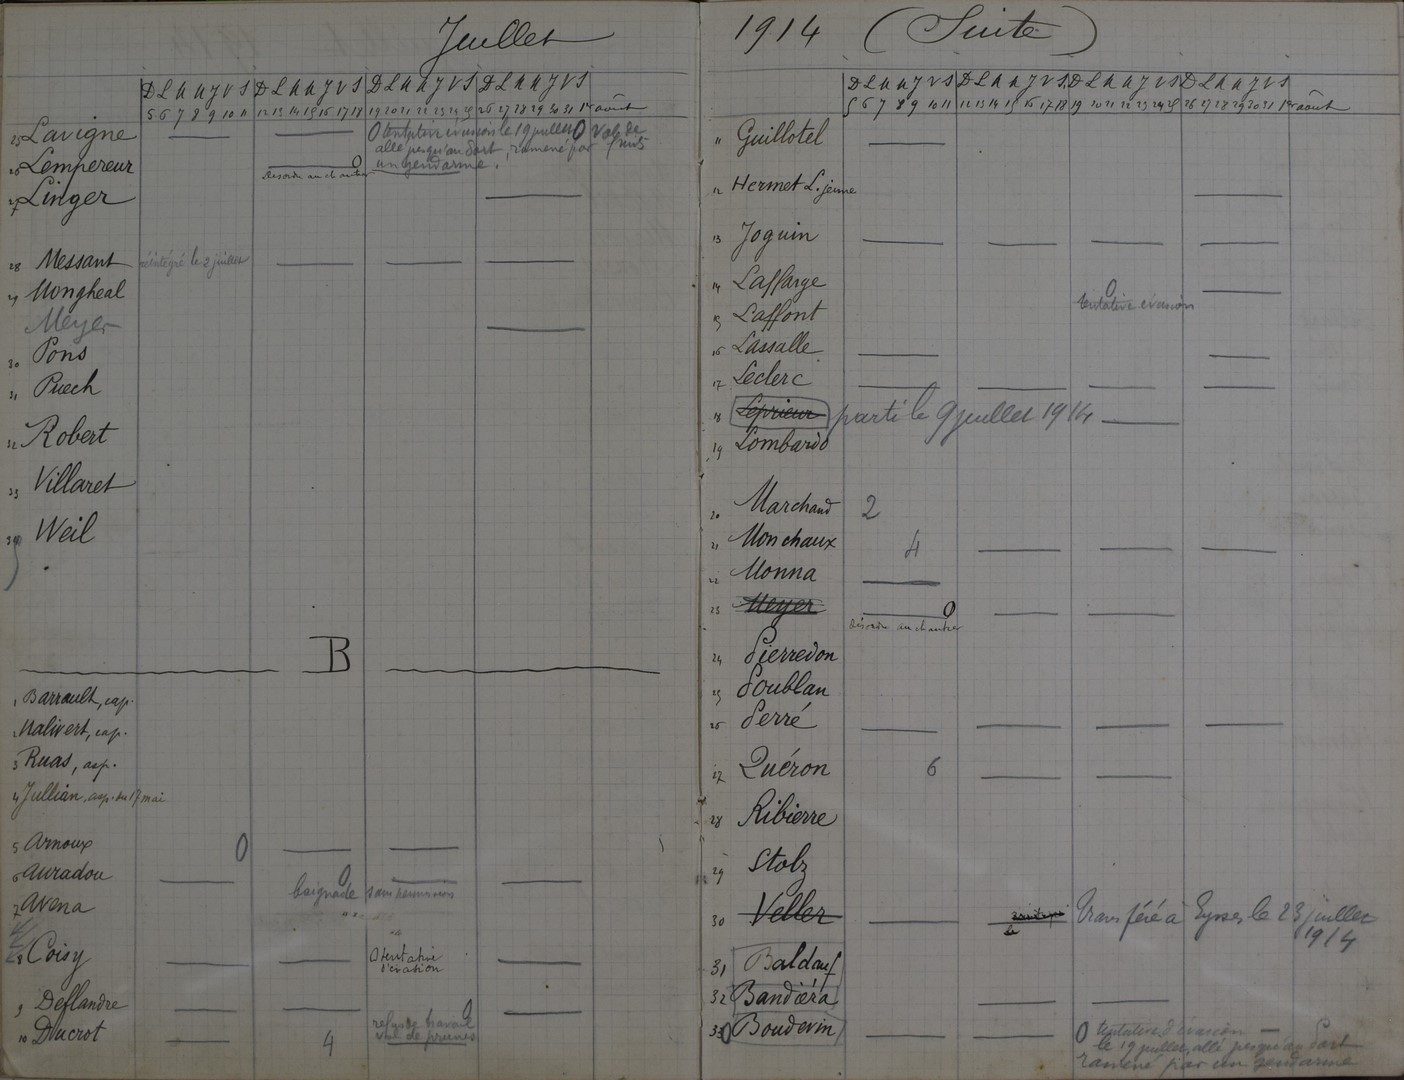 Juillet
D L M M J V S D L M M J V S D L M M J V S D L M M J V S
5 6 7 8 9 10 11 12 13 14 15 16 17 18 19 20 21 22 23 24 25 26 27 28 29 30 31 1er août
25 Lavigne O tentative évasion le 19 juillet O Vol de
allé jusqu'au Dart, ramené par fruits
26 Lempereur O un gendarme.
Désordre au chantier
27 Linger
28 Messant réintégré le 2 juillet
29 Mongheal
Meyer
30 Pons
31 Puech
32 Robert
33 Villaret
34 Weil
B
1 Barrault, cap.
2 Malivert, cap.
3 Ruas, asp.
4 Jullian, asp. du 17 mai
5 Arnoux O
6 Auradou O
baignade sans permission
7 Avena " "
8 Coisy O tentative
d'évasion
9 Deflandre O
10 Ducrot 4 refus de travail
vol de prunes
1914 (Suite)
D L M M J V S D L M M J V S D L M M J V S D L M M J V S
5 6 7 8 9 10 11 12 13 14 15 16 17 18 19 20 21 22 23 24 25 26 27 28 29 30 31 1er août
11 Guillotel
12 Hermet L. jeune
13 Joguin
14 Laffarge O
tentative évasion
15 Laffont
16 Lassalle
17 Leclerc
18 Leprieur parti le 9 juillet 1914
19 Lombardo
20 Marchand 2
21 Monchaux 4
22 Monna
23 Meyer O
Désordre au chantier
24 Pierredon
25 Poublan
26 Perré
27 Quéron 6
28 Ribierre
29 Stolz
30 Veller Transféré à Eysses le 23 juillet
1914
31 Baldauf
32 Bandiéra
33 O Boudevin O tentative d'évasion —
le 19 juillet, allé jusqu'au Dart
ramené par un gendarme